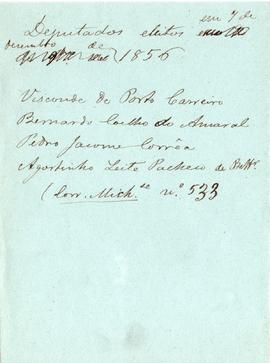 Deputados eleitos em 7 de
dezembro de 1856
Visconde de Porto Carreiro
Bernardo Coelho do Amaral
Pedro Jacome Corrêa
Agostinho Leite Pacheco de Bett.
(Corr. Mich.se n.º 533